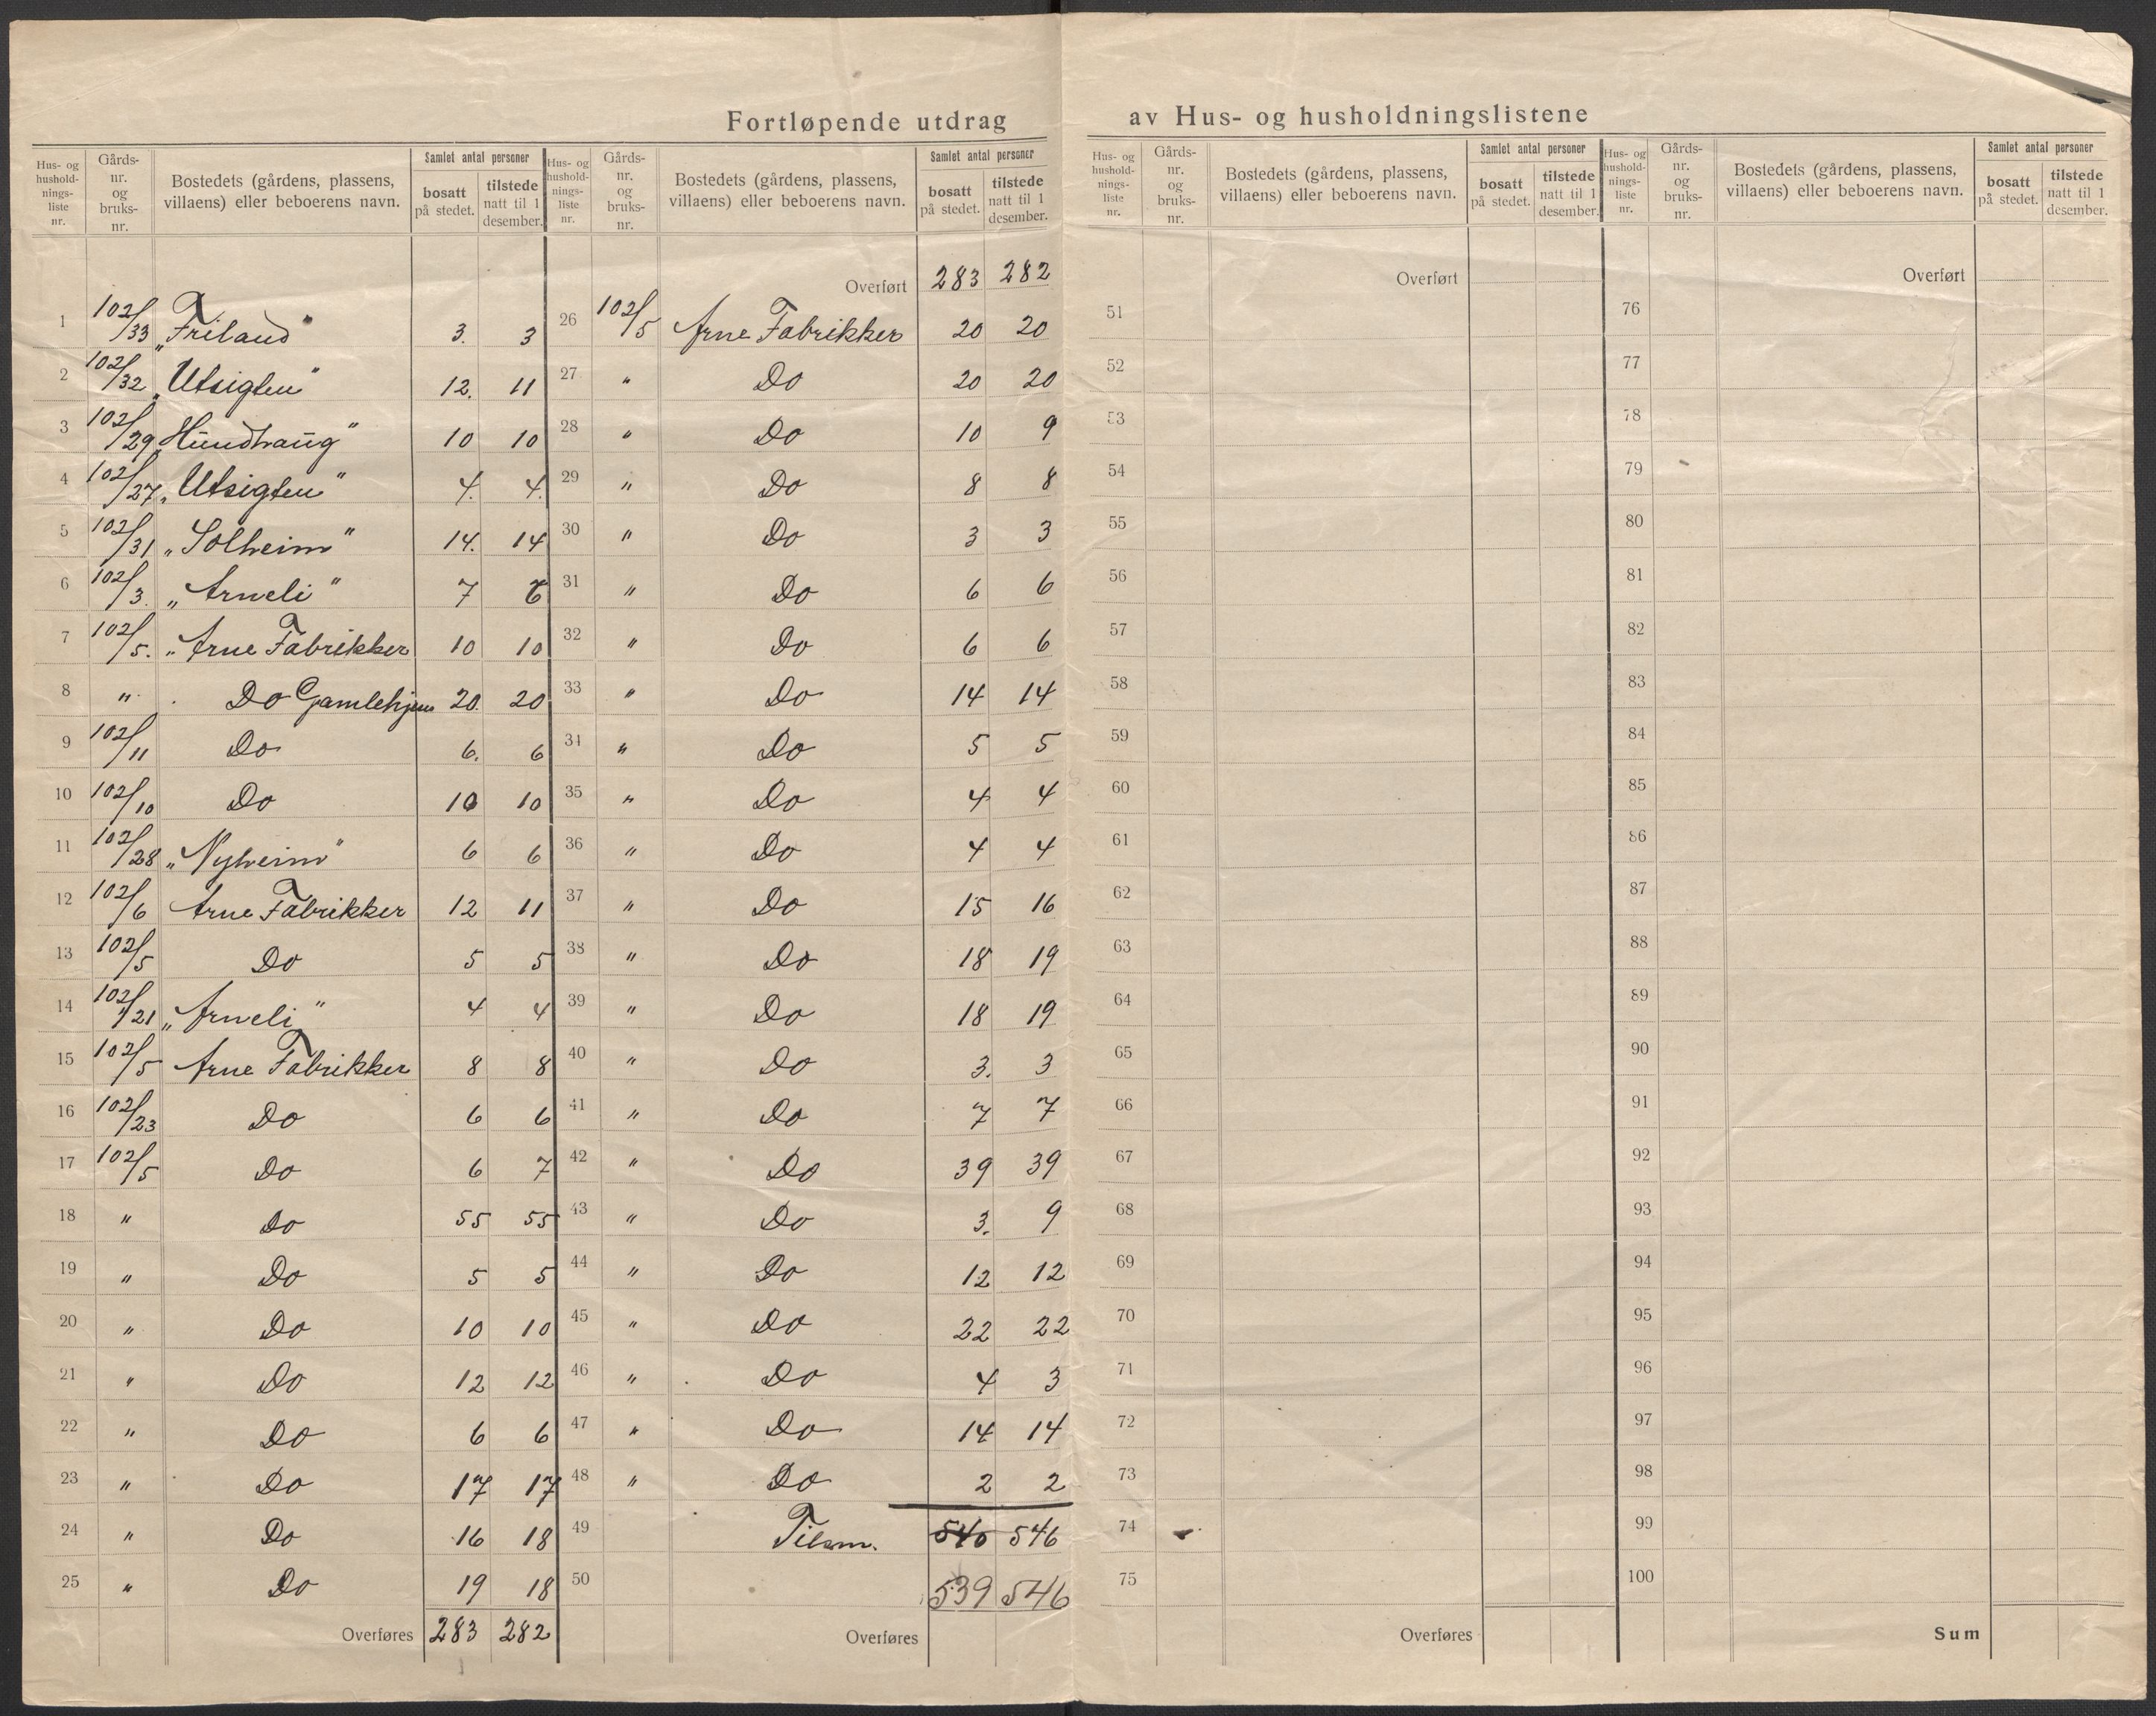 Fortløpende utdrag av Hus- og husholdningslistene
Hus- og husholdnings- liste nr. | Gårds- nr. og bruks- nr. | Bostedets (gårdens, plassens, villaens) eller beboerens navn. | Samlet antal personer | bosatt på stedet. | tilstede natt til 1 desember.
1 102/33 „Friland" 3. 3
2 102/32 „Utsigten" 12. 11
3 102/29 „Hundhaug" 10 10
4 102/27 „Utsigten" 4. 4.
5 102/31 „Solheim" 14. 14
6 102/3. „Arneli" 7 6
7 102/5. „Arne Fabrikker 10 10
8 " Do Gamlehjem 20. 20
9 102/11 Do 6. 6
10 102/10 Do 10 10
11 102/28 „Nyheim" 6 6
12 102/6 Arne Fabrikker 12 11
13 102/5 Do 5 5
14 102/21 „Arneli" 4 4
15 102/5 Arne Fabrikker 8 8
16 102/23 Do 6 6
17 102/5 Do 6 7
18 " Do 55 55
19 " Do 5 5
20 " Do 10 10
21 " Do 12 12
22 " Do 6 6
23 " Do 17 17
24 " Do 16 18
25 " Do 19 18
Overføres 283 282
Hus- og husholdnings- liste nr. | Gårds- nr. og bruks- nr. | Bostedets (gårdens, plassens, villaens) eller beboerens navn. | Samlet antal personer | bosatt på stedet. | tilstede natt til 1 desember.
Overført 283 282
26 102/5 Arne Fabrikker 20 20
27 " Do 20 20
28 " Do 10 9
29 " Do 8 8
30 " Do 3 3
31 " Do 6 6
32 " Do 6 6
33 " Do 14 14
34 " Do 5 5
35 " Do 4 4
36 " Do 4 4
37 " Do 15 16
38 " Do 18 19
39 " Do 18 19
40 " Do 3. 3
41 " Do 7 7
42 " Do 39 39
43 " Do 3. 9
44 " Do 12 12
45 " Do 22 22
46 " Do 4 3
47 " Do 14 14
48 " Do 2 2
49 Tilsm. 540 546
50 539 546
Overføres
Hus- og husholdnings- liste nr. | Gårds- nr. og bruks- nr. | Bostedets (gårdens, plassens, villaens) eller beboerens navn. | Samlet antal personer | bosatt på stedet. | tilstede natt til 1 desember.
Overført
51
52
53
54
55
56
57
58
59
60
61
62
63
64
65
66
67
68
69
70
71
72
73
74
75
Overføres
Hus- og husholdnings- liste nr. | Gårds- nr. og bruks- nr. | Bostedets (gårdens, plassens, villaens) eller beboerens navn. | Samlet antal personer | bosatt på stedet. | tilstede natt til 1 desember.
Overført
76
77
78
79
80
81
82
83
84
85
86
87
88
89
90
91
92
93
94
95
96
97
98
99
100
Sum